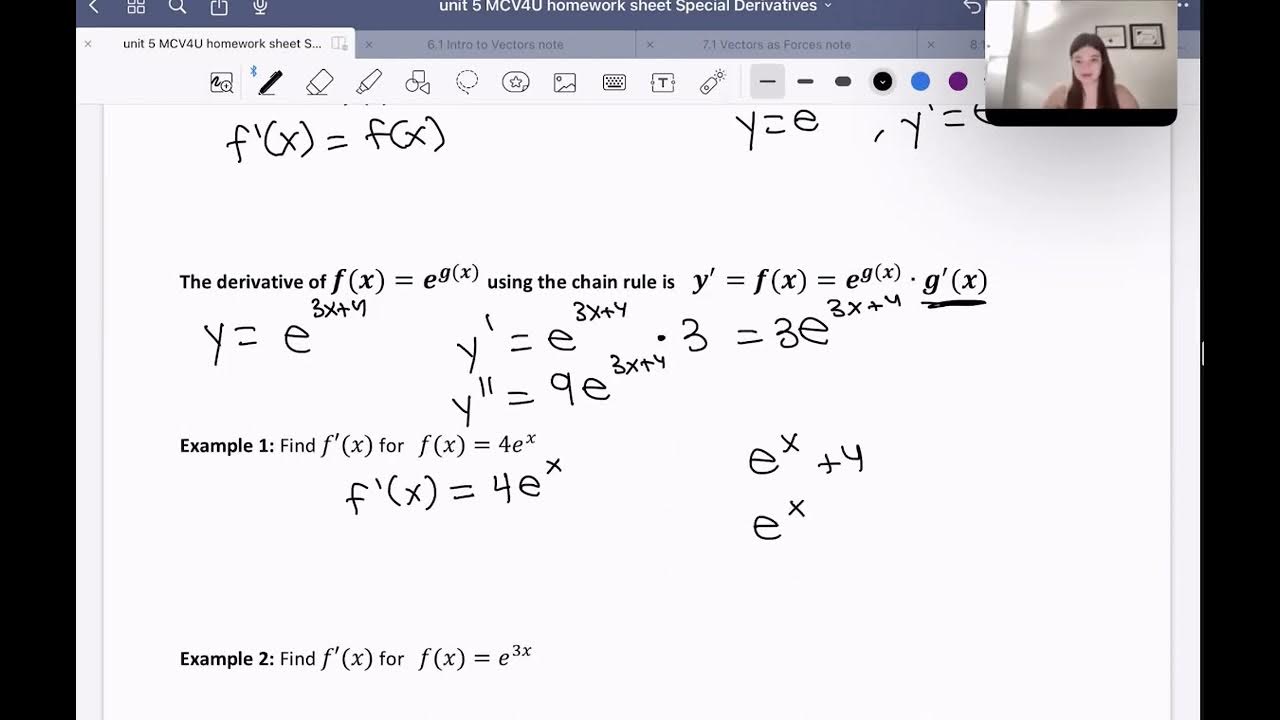 unit 5 MCV4U homework sheet Special Derivatives
unit 5 MCV4U homework sheet S... 6.1 Intro to Vectors note 7.1 Vectors as Forces note 8.1
f'(x) = f(x) y = e , y' = e
The derivative of f(x) = e^{g(x)} using the chain rule is y′ = f(x) = e^{g(x)} · g′(x)
y = e^{3x+4} y' = e^{3x+4} · 3 = 3e^{3x+4}
y'' = 9e^{3x+4}
Example 1: Find f′(x) for f(x) = 4e^x
e^x + 4
f'(x) = 4e^x
e^x
Example 2: Find f′(x) for f(x) = e^{3x}